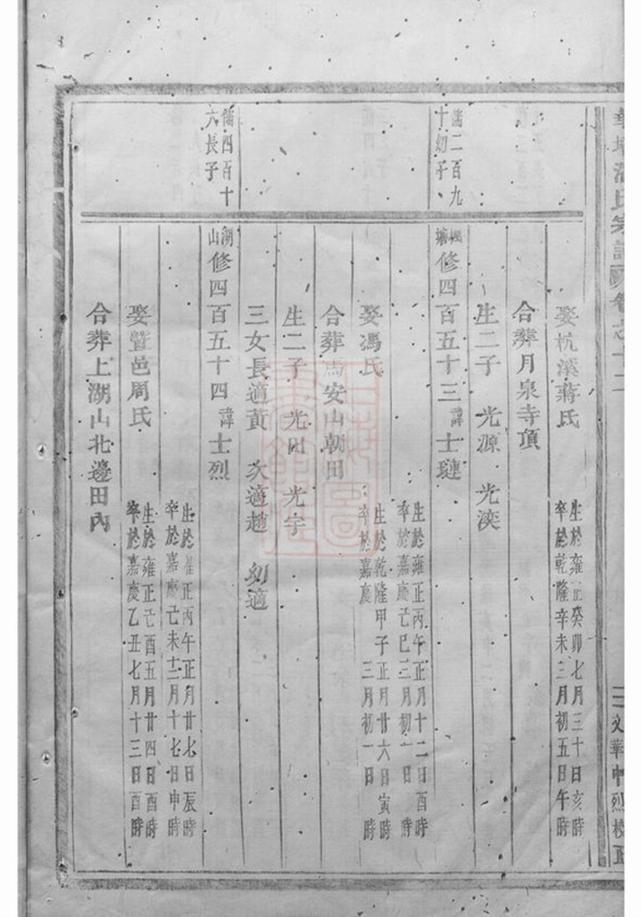 娶杭溪蔣氏
生於雍正癸卯七月三十日亥時
卒於乾隆辛未三月初五日午時
合葬月泉寺頂
生二子 光源 光湙
二百九
十幼子
修四百五十三 諱 士璉
生於雍正丙午正月十二日酉時
卒於嘉慶 巳三月初一日 時
娶馮氏
生於乾隆甲子正月廿六日寅時
卒於嘉慶 三月初一日 時
合葬馬安山朝田
生二子 光田 光宇
三女長適黃 次適趙 幼適
儒四百十
六長子
湖山
修四百五十四 諱 士烈
生於雍正丙午正月廿七日辰時
卒於嘉慶 未十二月十七日申時
娶暨邑周氏
生於雍正 酉五月廿四日酉時
卒於嘉慶乙丑七月十三日酉時
合葬上湖山北邊田內